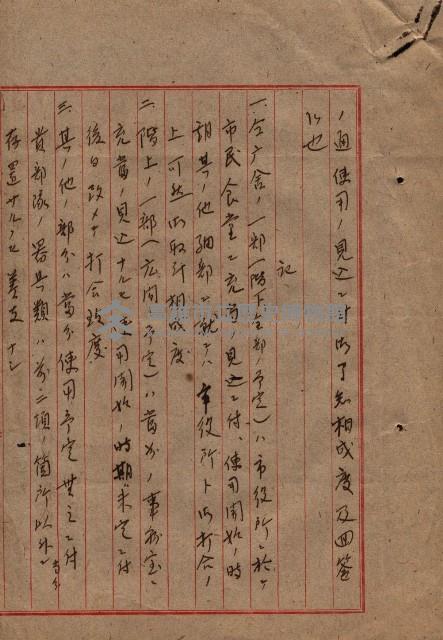 ノ通使用ノ見込ニ付御了知相成度及回答
候也
記
一、今庁舎ノ一部(階下全部ノ予定)ハ市役所ニ於テ
市民食堂ニ充当ノ見込ニ付、使用開始ノ時
期其ノ他細部ニ就テハ市役所ト御打合ノ
上可然御取計相成度
二、階上ノ一部(広間ノ予定)ハ当分ノ事務室ニ
充当ノ見込ナルモ使用開始ノ時期未定ニ付
後日改メテ打合致度
三、其ノ他ノ部分ハ当分使用予定無之ニ付
貴部隊ノ器具類ハ前二項ノ箇所以外ニ当分
存置サルルモ差支ナシ